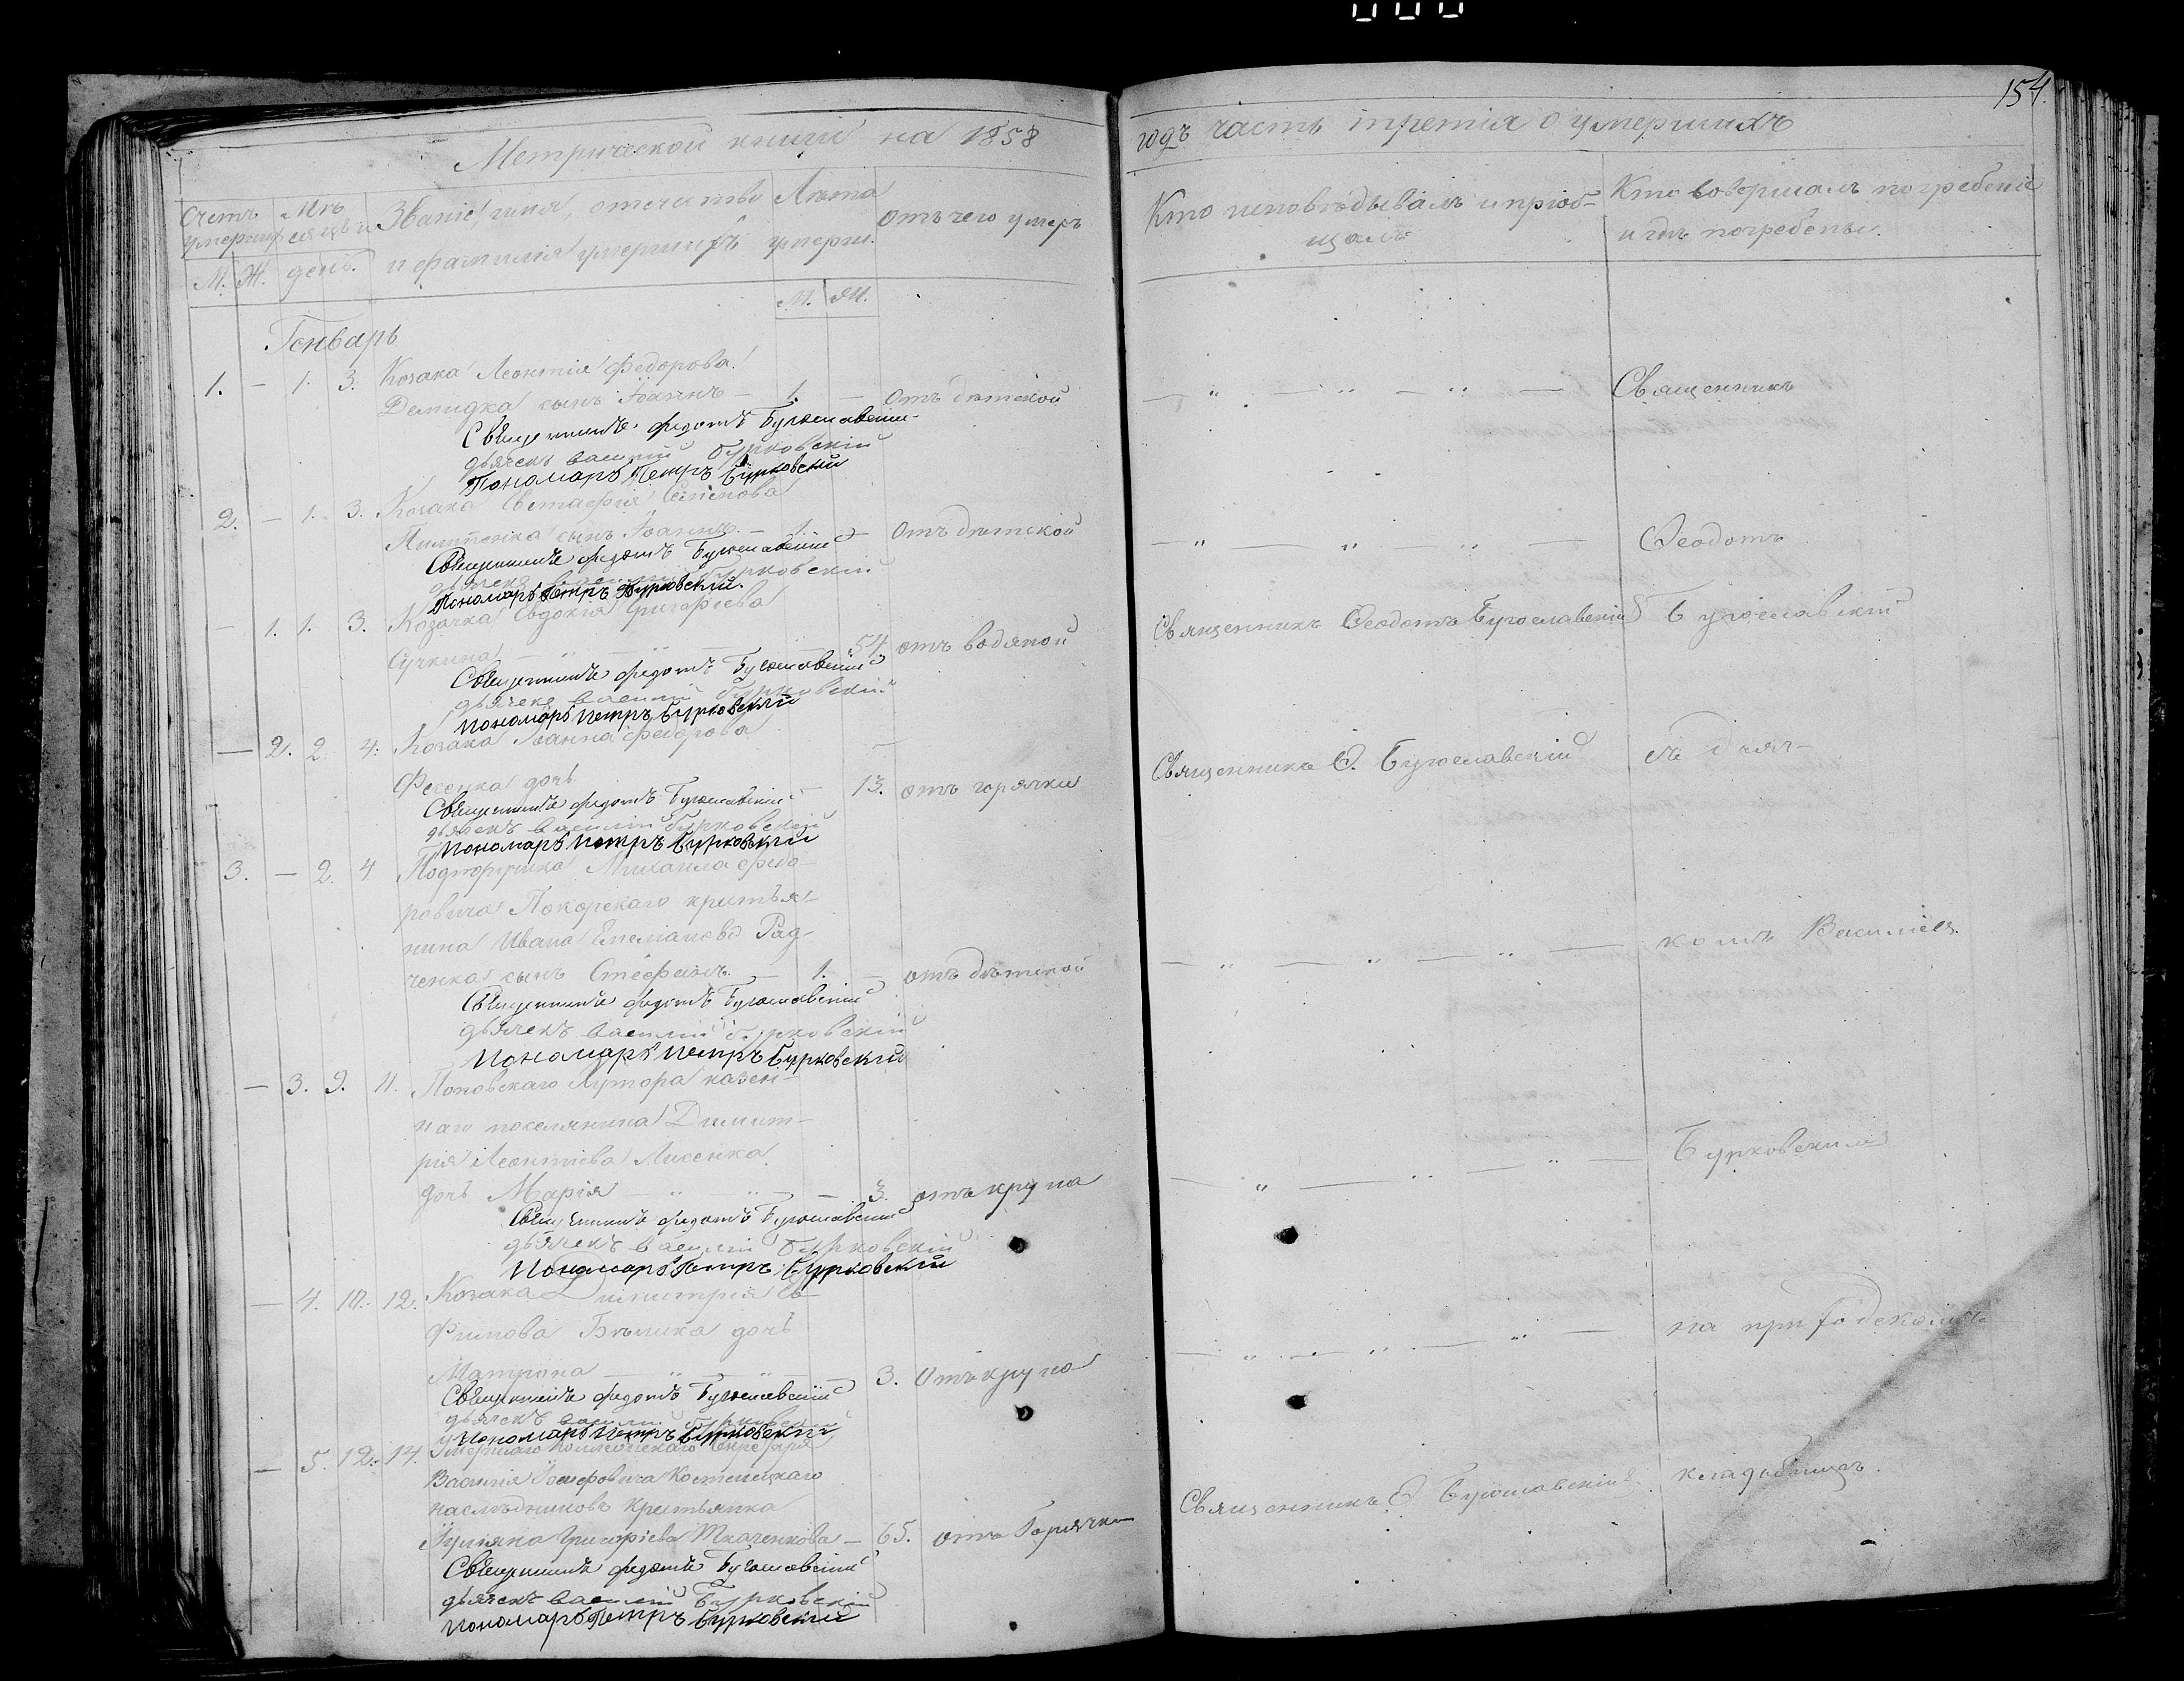 154.
Метрической книги на 1858
годъ часть третія о умершихъ
Счетъ умерш.
Мѣсяцъ и день.
Званіе, имя, отечество и фамилія умершихъ
Лѣта умерш.
Отъ чего умеръ
Кто исповѣдывалъ и пріобщалъ
Кто совершалъ погребеніе и гдѣ погребены.
М. Ж.
М. Ж.
Генварь
1. — 1. 3. Козака Леонтія Федорова
Демидка сынъ Іоаннъ — 1. — Отъ дѣтской — " — " — " — Священникъ
Священникъ Федотъ Бугославскій
дьячекъ Василій Бурковскій
Пономарь Петръ Бурковскій
2. — 1. 3. Козака Евстафія Семенова
сынъ Іоаннъ — 1. — Отъ дѣтской — " — " — " — Ѳеодотъ
Священникъ Федотъ Бугославскій
дьячекъ Василій Бурковскій
Пономарь Петръ Бурковскій.
— 1. 1. 3. Козачка Евдокія Григорьева
Сучкина — " — " — 54. отъ водяной Священникъ Ѳеодотъ Бугославскій Бугославскій
Священникъ Федотъ Бугославскій
дьячекъ Василій Бурковскій
Пономарь Петръ Бурковскій
— 2. 2. 4. Козака Іоанна Федорова
Фесенка дочь — 13. отъ горячки Священникъ Ѳ. Бугославскій съ дьяч-
Священникъ Федотъ Бугославскій
дьячекъ Василій Бурковскій
Пономарь Петръ Бурковскій
3. — 2. 4 Михаила Федо-
ровича Покорскаго крестья-
нина Ивана Емельянова Рад-
ченка сынъ Стефанъ. — 1. — отъ дѣтской — " — " — " — комъ Василіемъ
Священникъ Федотъ Бугославскій
дьячекъ Василій Бурковскій
Пономарь Петръ Бурковскій
— 3. 9. 11. Поповскаго Хутора казен-
наго поселянина Димит-
рія Леонтіева Лисенка
дочь Марія — " — " — 3. отъ крупа — " — " — " — Бурковскимъ
Священникъ Федотъ Бугославскій
дьячекъ Василій Бурковскій
Пономарь Петръ Бурковскій
— 4. 10. 12. Козака Димитрія Ев-
фимова Бѣлика дочь
Матрона — " — " — 3. Отъ крупа — " — " — " — на приходскомъ
Священникъ Федотъ Бугославскій
дьячекъ Василій Бурковскій
Пономарь Петръ Бурковскій
— 5. 12. 14. Умершаго Коллежскаго Секретаря
Василія Іосифовича Костенецкаго
наслѣдниковъ крестьянка
Григоріева Ткаченкова — 65. отъ Горячки Священникъ Ѳ. Бугославскій кладбищѣ.
Священникъ Федотъ Бугославскій
дьячекъ Василій Бурковскій
Пономарь Петръ Бурковскій